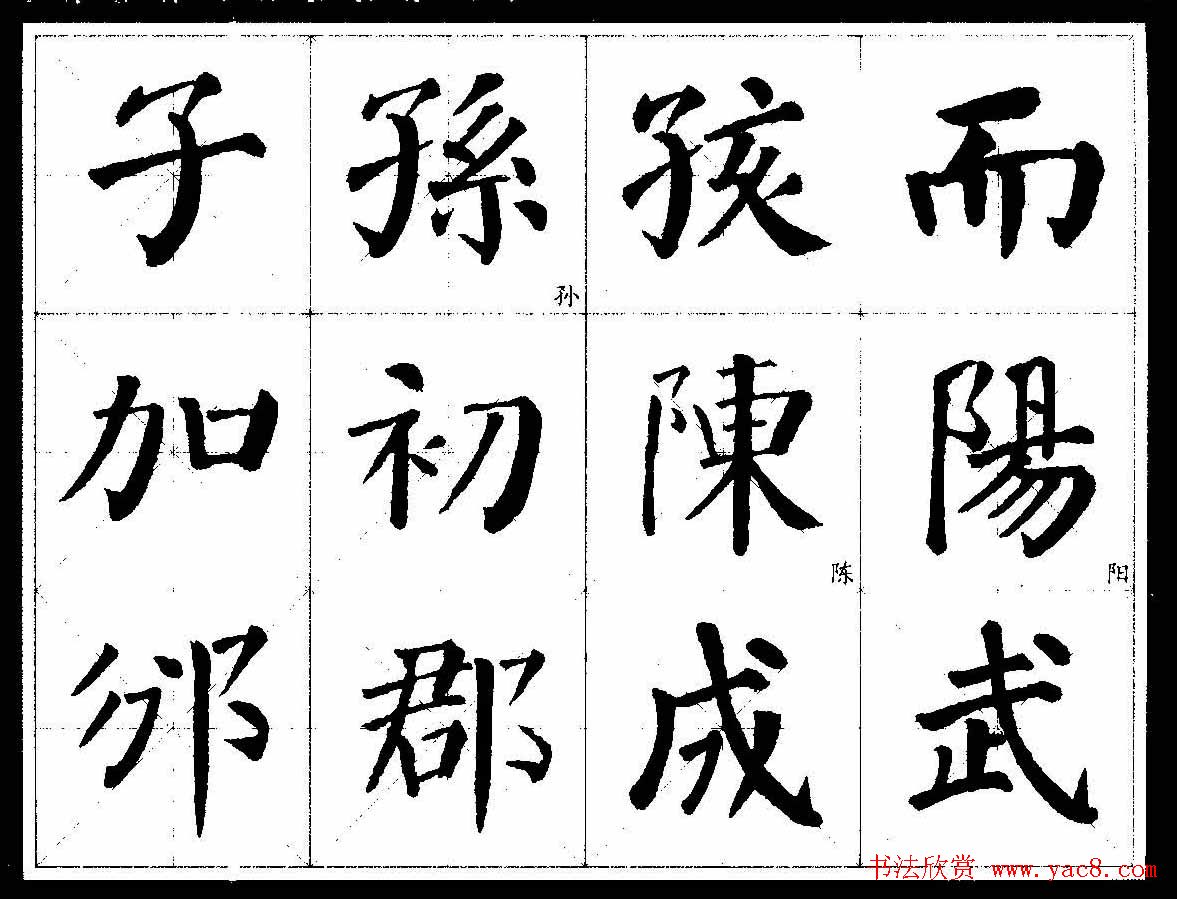 子 孫 孩 而
孙
加 初 陳 陽
陈 阳
邠 郡 成 武
书法欣赏 www.yac8.com